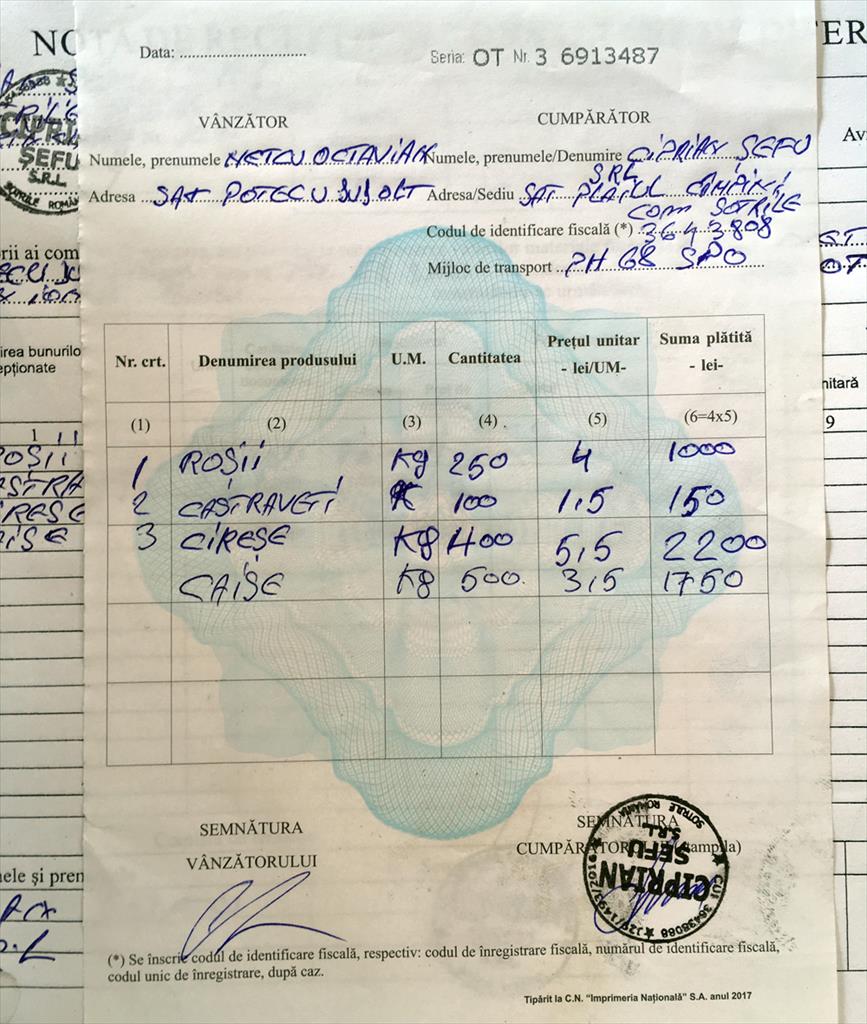 Data: ................................
Seria: OT Nr. 3 6913487
VÂNZĂTOR
CUMPĂRĂTOR
Numele, prenumele NETCU OCTAVIAN
Numele, prenumele/Denumire CIPRIAN ȘEFU
SRL
Adresa SAT POTECU JUȘ OLT
Adresa/Sediu SAT PLAIUL CÎMPINII
COM SOTRILE
Codul de identificare fiscală (*) 3643808
Mijloc de transport PH 68 SPO
Nr. crt. Denumirea produsului U.M. Cantitatea Prețul unitar - lei/UM- Suma plătită - lei-
(1) (2) (3) (4) (5) (6=4x5)
1 ROȘII Kg 250 4 1000
2 CAȘTRAVEȚI 100 1,5 150
3 CIREȘE Kg 400 5,5 2200
CAIȘE Kg 500 3,5 1750
SEMNĂTURA
VÂNZĂTORULUI
SEMNĂTURA
CUMPĂRĂTOR
CIPRIAN
ȘEFU
S.R.L.
CUI 36438088 ★ J29/1493/2016 ★ SOTRILE ROMÂNIA
(*) Se înscrie codul de identificare fiscală, respectiv: codul de înregistrare fiscală, numărul de identificare fiscală,
codul unic de înregistrare, după caz.
Tipărit la C.N. "Imprimeria Națională" S.A. anul 2017